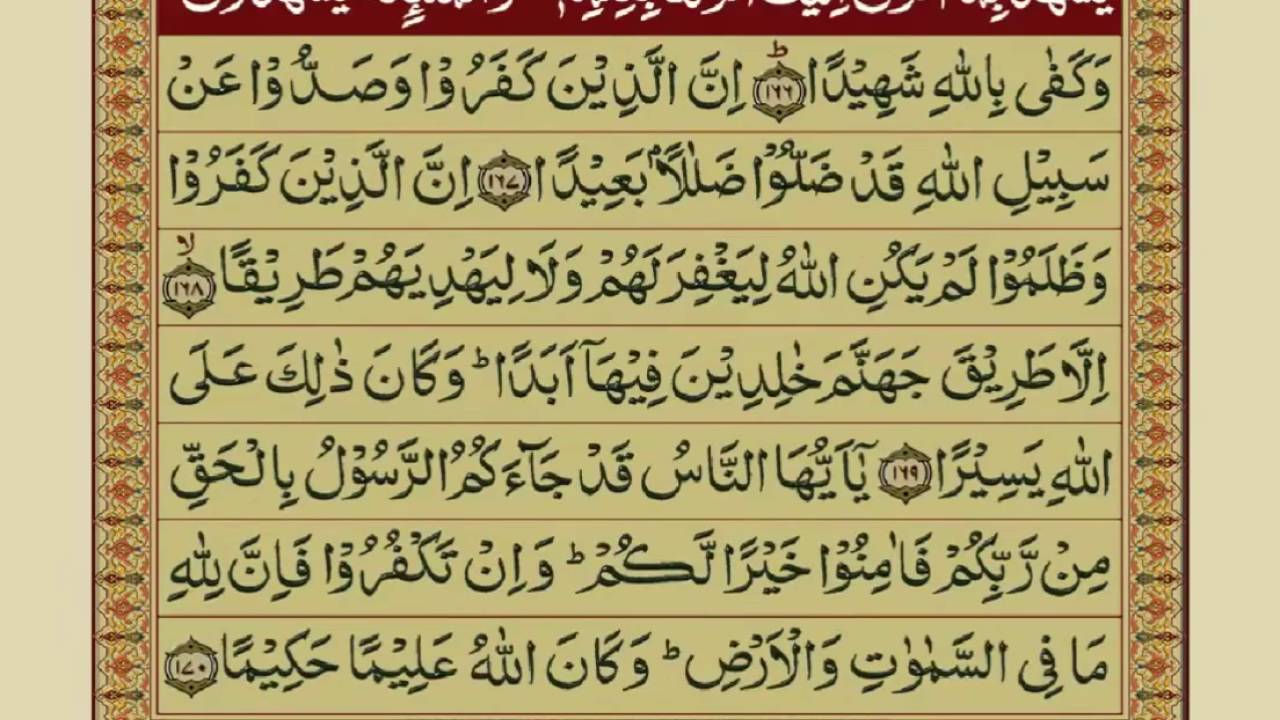 وَكَفٰى بِاللّٰهِ شَهِيْدًا ؕ ﴿۱۶۶﴾ اِنَّ الَّذِيْنَ كَفَرُوْا وَصَدُّوْا عَنْ
سَبِيْلِ اللّٰهِ قَدْ ضَلُّوْا ضَلٰلًاۢ بَعِيْدًا ﴿۱۶۷﴾ اِنَّ الَّذِيْنَ كَفَرُوْا
وَظَلَمُوْا لَمْ يَكُنِ اللّٰهُ لِيَغْفِرَ لَهُمْ وَلَا لِيَهْدِيَهُمْ طَرِيْقًا ۙ ﴿۱۶۸﴾
اِلَّا طَرِيْقَ جَهَنَّمَ خٰلِدِيْنَ فِيْهَاۤ اَبَدًا ؕ وَكَانَ ذٰلِكَ عَلَى
اللّٰهِ يَسِيْرًا ﴿۱۶۹﴾ يٰۤاَيُّهَا النَّاسُ قَدْ جَآءَكُمُ الرَّسُوْلُ بِالْحَقِّ
مِنْ رَّبِّكُمْ فَاٰمِنُوْا خَيْرًا لَّكُمْ ؕ وَاِنْ تَكْفُرُوْا فَاِنَّ لِلّٰهِ
مَا فِى السَّمٰوٰتِ وَالْاَرْضِ ؕ وَكَانَ اللّٰهُ عَلِيْمًا حَكِيْمًا ﴿۱۷۰﴾